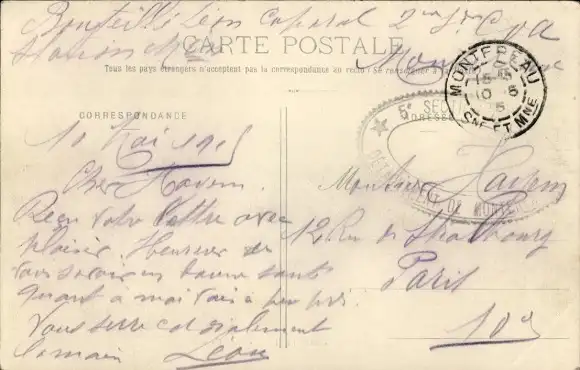 Bouteillé Léon caporal 2me
CARTE POSTALE
Tous les pays étrangers n'acceptent pas la correspondance au recto (Se renseigner à la
MONTEREAU
15
10 - 5
15
SNE ET MNE
6e SECTION
CORRESPONDANCE
ADRESSE
DE MONTEREAU
10 Mai 1915
Cher Hayem.
Reçu votre lettre avec
plaisir. Heureux de
vous savoir en bonne santé
quant à moi ça va à peu près.
Vous serre cordialement
la main Léon
Monsieur Hayem
12 Rue de Strasbourg
Paris
10e